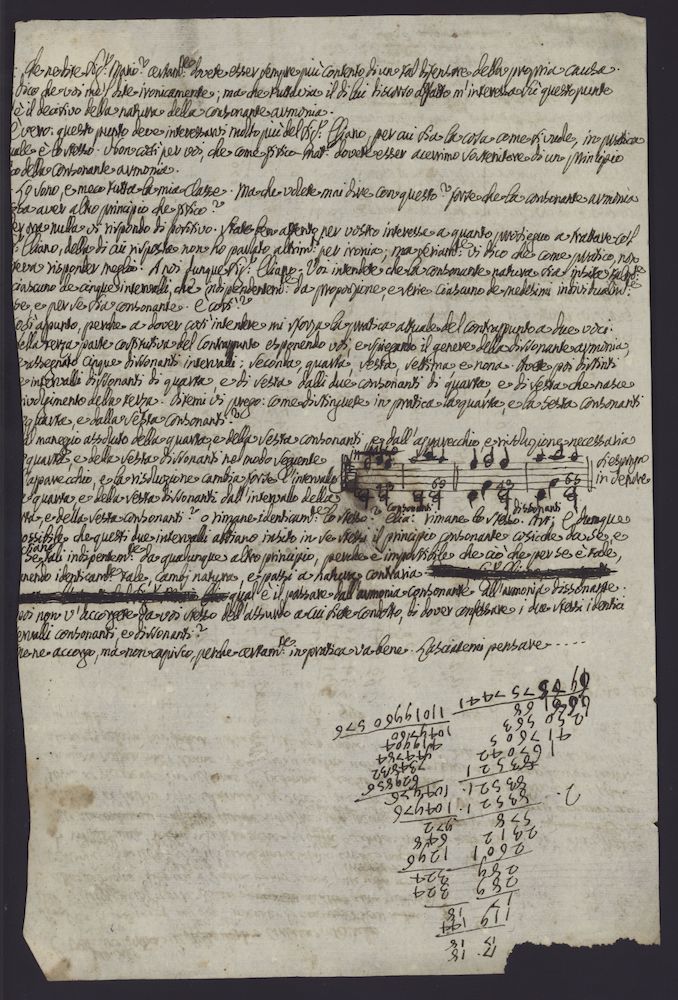 che ne dite Sig.r Mario? certam.te dovete esser sempre più contento di un tal difensore della propria causa.
dico che voi mi dite ironicamente; ma che tuttavia il di lui discorso affatto m'interessa sù questo punto
è il decisivo della natura della consonante armonia.
È vero: questo punto deve interessarvi molto più del Sig.r Eliano, per cui sia la cosa come si vuole, in prattica
è lo stesso. Non così per voi, che come fisico mat.o dovete esser acerrimo sostenitore di un principio
co della consonante armonia.
Lo sono, e meco tutta la mia Classe. Ma che volete mai dire con questo? forse che la consonante armonia
aver altro principio che fisico?
Per ora nulla vi rispondo di positivo. State ben attento per vostro interesse a quanto proseguo a trattare col
Sig.r Eliano, della di cui risposta non ho parlato altrim.te per ironia; ma seriam.te vi dico che come pratico, non
poteva risponder meglio. A noi dunque Sig.r Eliano: Voi intendete che la consonante natura sia insita
ciascuno de cinque intervalli, che independentem.te da proporzione, e serie ciascuno de medesimi individualm.te
se, e per se sia consonante. È così?
Così appunto, perche a dover così intendere mi sforza la pratica attuale del contrapunto a due voci.
Nella terza parte costitutiva del Contrapunto esponendo voi, e spiegando il genere della dissonante armonia,
assegnato cinque dissonanti intervalli: seconda, quarta, sesta, settima e nona. Avete poi distinti
intervalli dissonanti di quarta, e di sesta dalli due consonanti di quarta, e di sesta che nasce
rivolgimento della terza. Ditemi vi prego: come distinguete in pratica la quarta, e la sesta consonanti
quarta, e dalla sesta consonanti?
Dal maneggio assoluto della quarta, e della sesta consonanti, e dall'apparecchio, e risoluzione necessaria
quarta, e della sesta dissonanti nel modo seguente
L'apparecchio, e la risoluzione cambia forse l'intervallo
quarta, e della sesta dissonanti dall'intervallo della
di esempio
in Genere
43 65 43 65
Consonanti
dissonanti
quarta, e della sesta consonanti? o rimane identicam.te lo stesso? Elia: rimane lo stesso. E dunque
possibile che questi due intervalli abbiano insito in se stessi il principio consonante cosicche da se, e
se tali indipentem.te da qualunque altro principio, perche è impossibile che ciò che per se è tale,
identicam.te tale, cambj natura, e passi a natura contraria
qual'è il passare dall'armonia consonante all'armonia dissonante.
voi non v'accorgete da voi stesso dell'assurdo a cui siete condotto, di dover confessare i due stessi identici
intervalli consonanti, e dissonanti?
Me ne accorgo, ma non capisco, perche certam.te in pratica va bene. Lasciatemi pensare .....
17. 18
18
119 144
17 18
289 324
289 324
2601 1296
2312 648
578 972
83521. 104976
83521. 104976
83521 629856
167042 734832
417605 944784
250563 419904
668168 1049760
6975757441 11019960576
2.